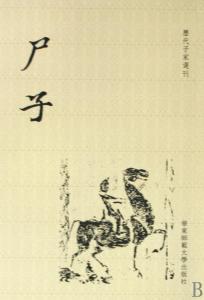 歷代子家選刊
尸子
華東師範大學出版社
B